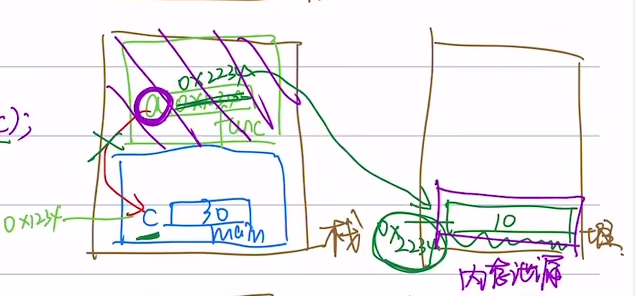 0x2234
a
func
c);
0x1234
c 30
main
栈
0x2234
10
堆
内存泄漏